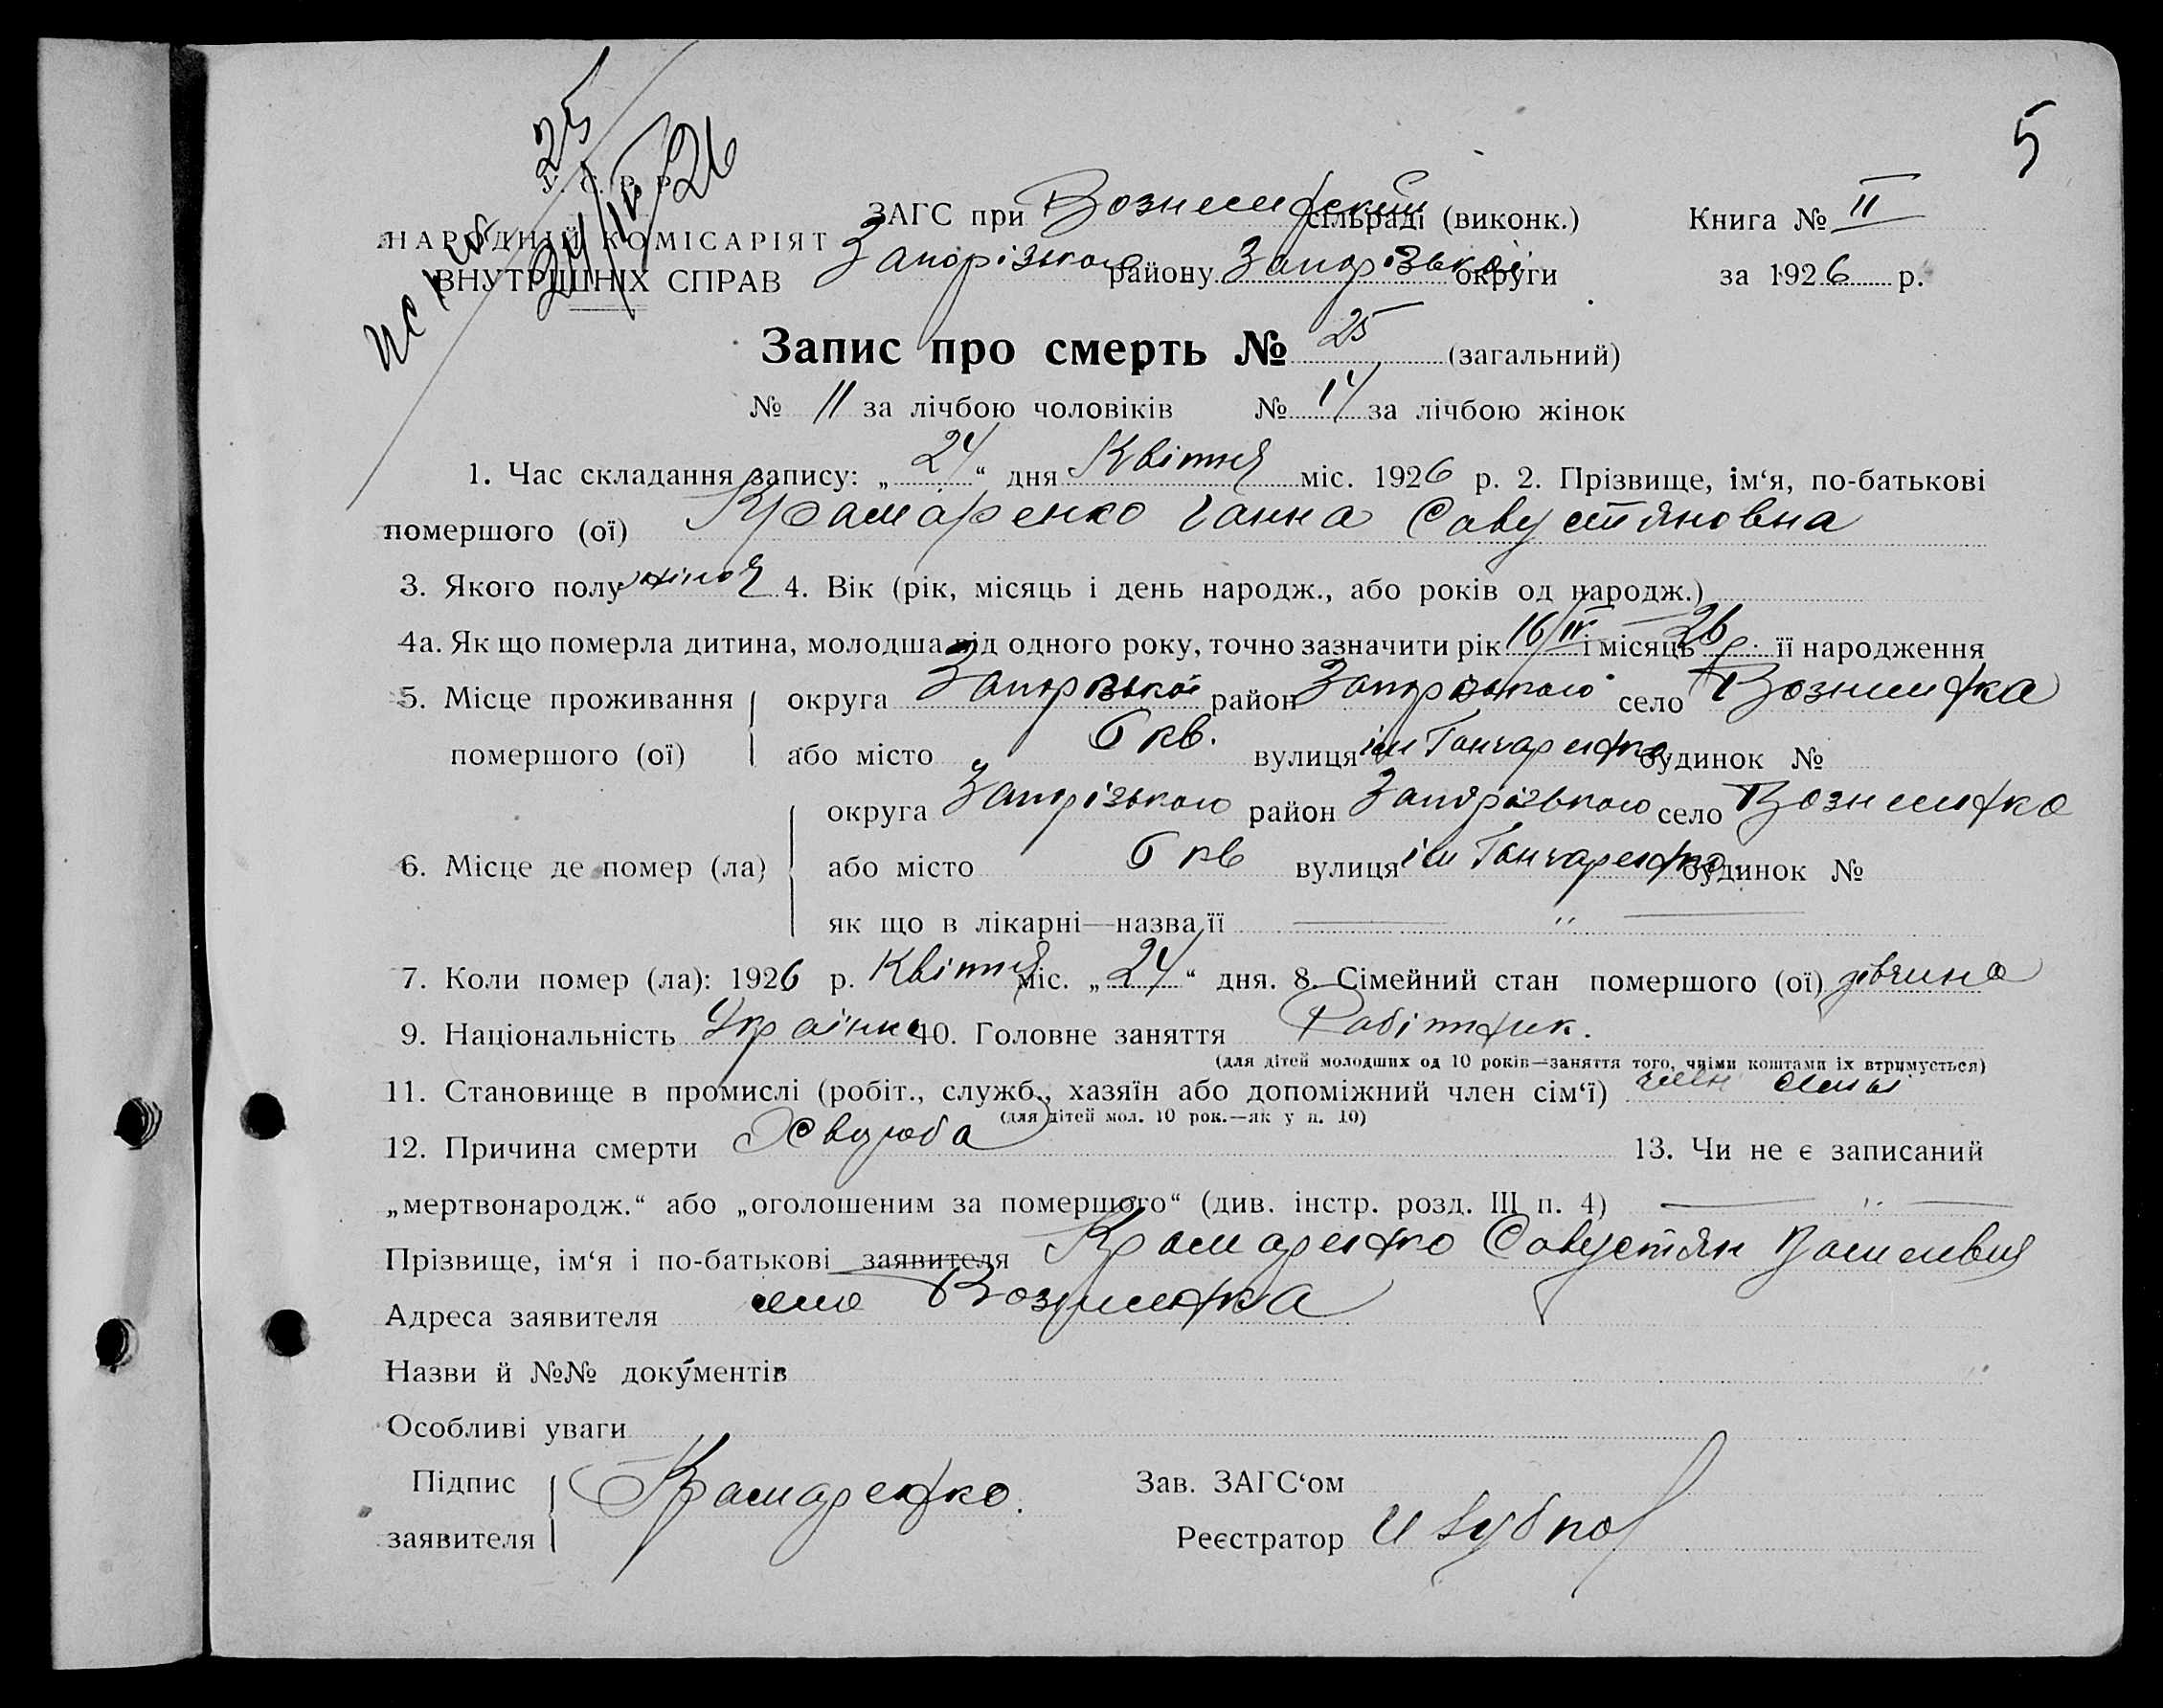 5
25
24/IV 26
У. С. Р. Р.
НАРОДНІЙ КОМІСАРІЯТ
ВНУТРІШНІХ СПРАВ
ЗАГС при Вознесенській сільраді (виконк.) Книга № II
Запорізького району Запорізької округи за 1926 р.
Запис про смерть № 25 (загальний)
№ 11 за лічбою чоловіків № 14 за лічбою жінок
1. Час складання запису: „24“ дня Квітня міс. 1926 р. 2. Прізвище, ім‘я, по-батькові
помершого (ої) Крамаренко Ганна Савустяновна
3. Якого полу жіноч 4. Вік (рік, місяць і день народж., або років од народж.)
4а. Як що померла дитина, молодша від одного року, точно зазначити рік 16/IV і місяць 26 р. її народження
5. Місце проживання округа Запорізької район Запорізького село Вознесенка
помершого (ої) або місто 6 кв. вулиця ім Гончаренка будинок №
округа Запорізького район Запорізького село Вознесенка
6. Місце де помер (ла) або місто 6 кв вулиця ім Гончаренка будинок №
як що в лікарні—назва її — " —
7. Коли помер (ла): 1926 р. Квітня міс. „24“ дня. 8. Сімейний стан помершого (ої) дівчина
9. Національність Українка 10. Головне заняття Робітник.
(для дітей молодших од 10 років—заняття того, чиїми коштами їх втримується)
11. Становище в промислі (робіт., служб., хазяїн або допоміжний член сім‘ї) член симьі
(для дітей мол. 10 рок.—як у п. 10)
12. Причина смерти Хвороба 13. Чи не є записаний
„мертвонародж.“ або „оголошеним за помершого“ (див. інстр. розд. III п. 4) — " —
Прізвище, ім‘я і по-батькові заявителя Крамаренко Савустян Василевич
Адреса заявителя село Вознесенка
Назви й №№ документів
Особливі уваги
Підпис Крамаренко. Зав. ЗАГС‘ом
заявителя Реєстратор